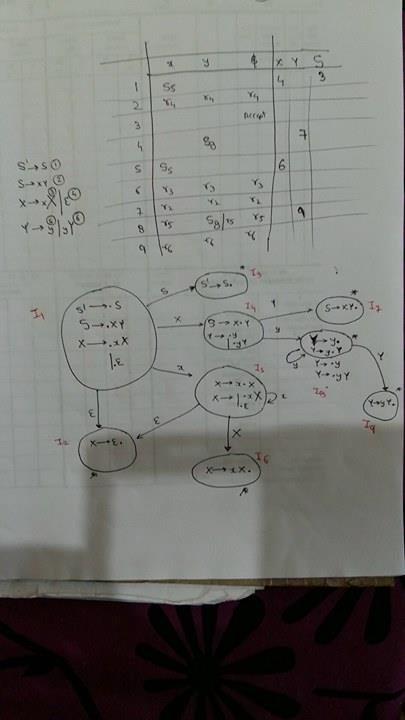 x y $ X Y S
1 S5 4 3
2 r4 r4 r4
3 Accept
4 S8 7
5 S5 6
6 r3 r3 r3
7 r2 r2 r2
8 r5 S8/r5 r5 9
9 r6 r6 r6
S' → S ①
S → XY ②
X → xX ③ | ε ④
Y → y ⑤ | yY ⑥
I1
S' → .S
S → .XY
X → .xX
|.ε
S
I3
S' → S.
*
X
I4
S → X.Y
Y → .y
|.yY
Y
I7
S → XY.
*
y
I8
Y → y.
Y → y.Y
Y → .y
Y → .yY
*
y
Y
I9
Y → yY.
*
x
I5
X → x.X
X → |.xX
.ε
x
ε
ε
I2
X → ε.
*
X
I6
X → xX.
*